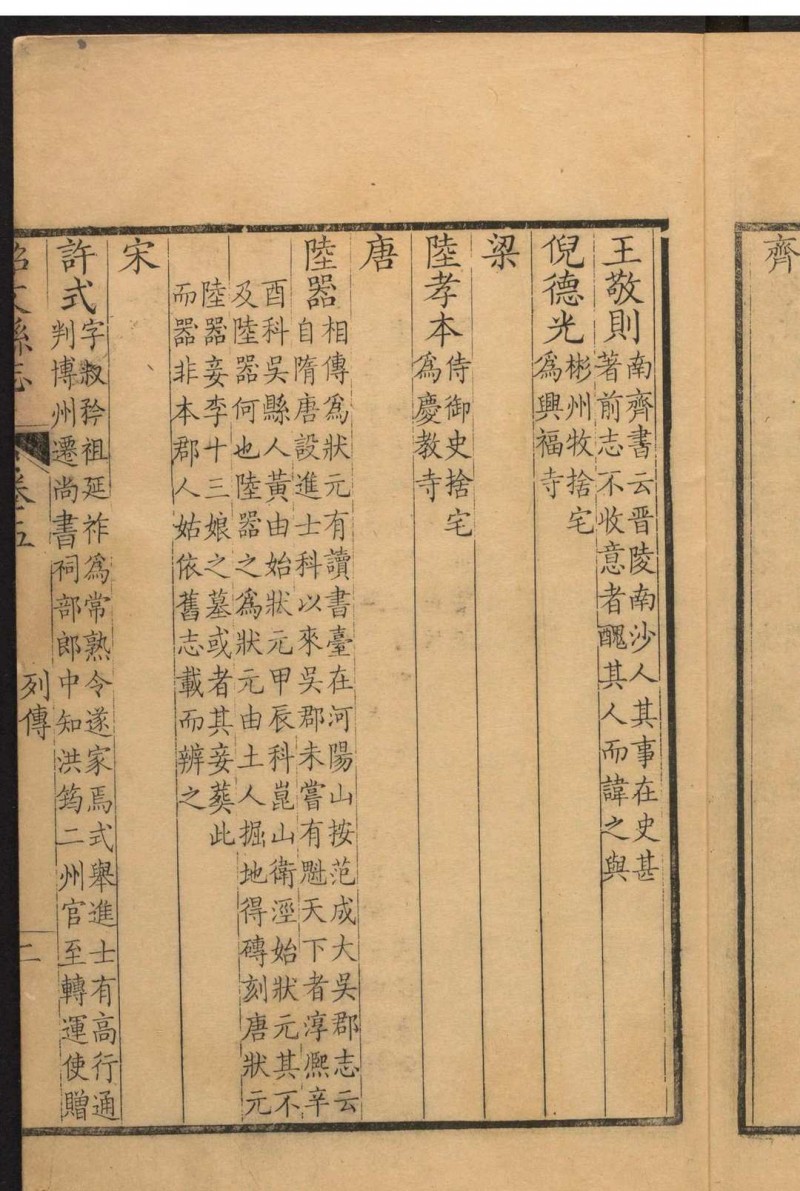 齊
王敬則
南齊書云晋陵南沙人其事在史甚
著前志不收意者醜其人而諱之與
倪德光
彬州牧捨宅
爲興福寺
梁
陸孝本
侍御史捨宅
爲慶教寺
唐
陸器
相傳爲狀元有讀書臺在河陽山按范成大吳郡志云
自隋唐設進士科以來吳郡未嘗有魁天下者淳熈辛
酉科吳縣人黃由始狀元甲辰科崑山衛涇始狀元其不
及陸器何也陸器之爲狀元由土人掘地得磚刻唐狀元
陸器妾李十三娘之墓或者其妾葬此
而器非本郡人姑依舊志載而辨之
宋
許式
字叔矜祖延祚爲常熟令遂家焉式舉進士有高行通
判博州遷尚書祠部郎中知洪筠二州官至轉運使贈
昭文縣志
卷五
列傳
二